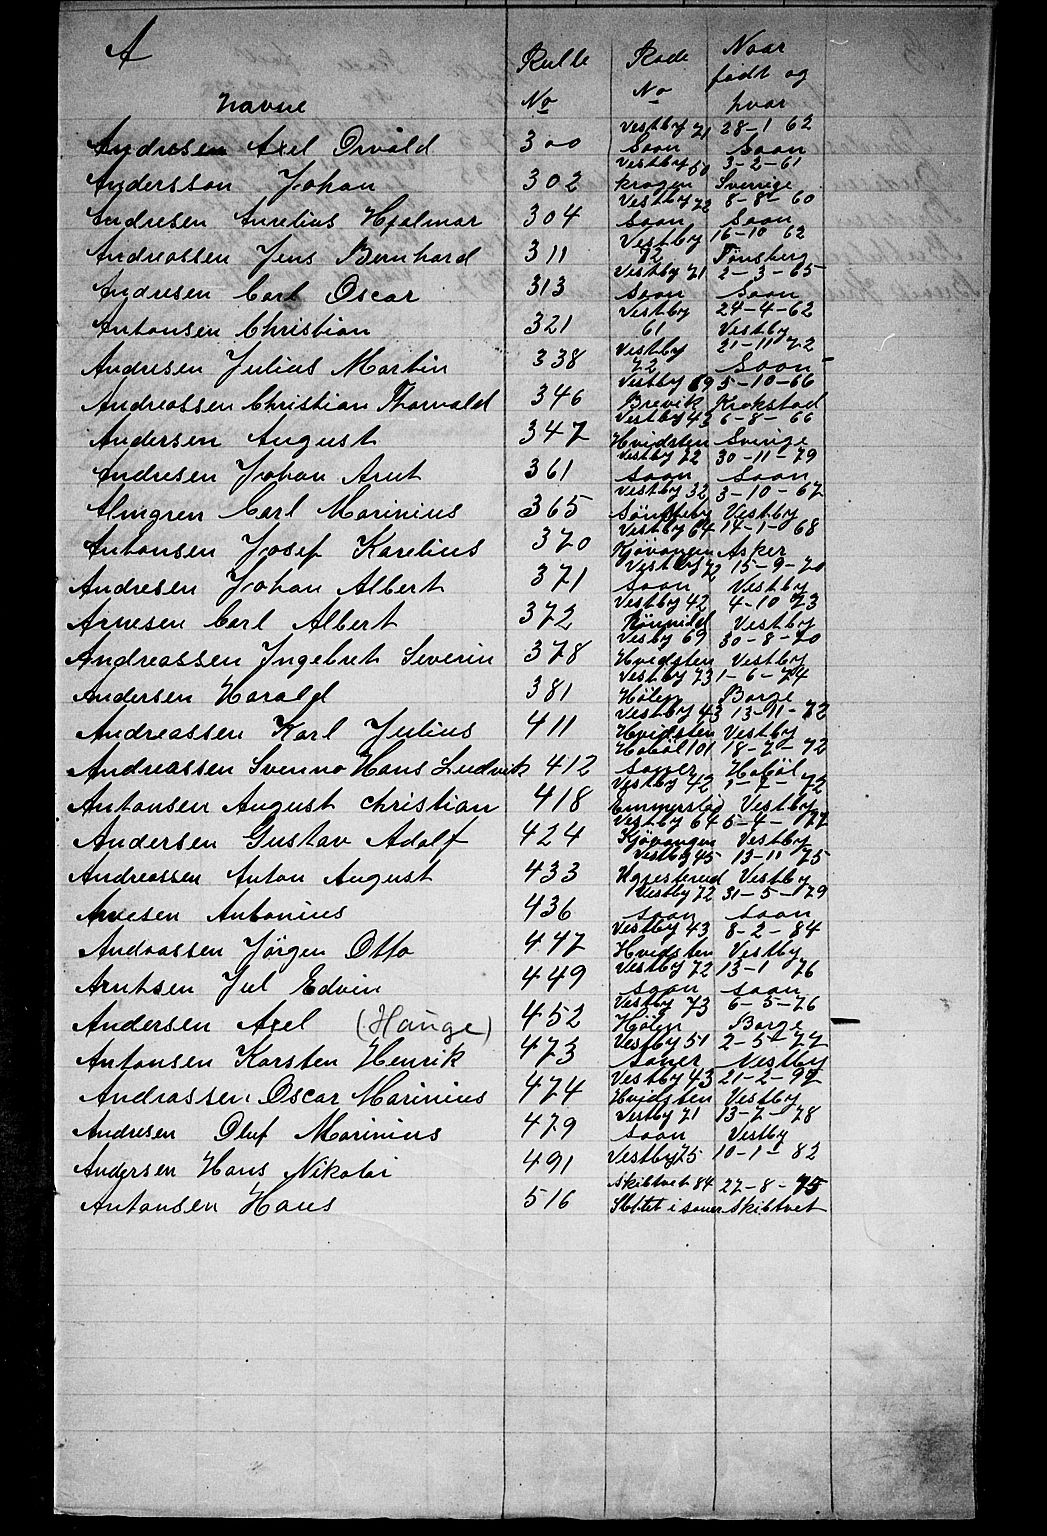 A
Navne Rulle No Rode No Naar født og hvor
Andresen Axel Osvald 300 Vestby 71 Soon 28-1 62 Soon
Andersson Johan 302 Vestby 50 Krogen 3-2-61 Sverrige
Andresen Aurelius Hjalmar 304 Vestby 72 Soon 8-8-60 Soon
Andreassen Jens Bernhard 311 Vestby 72 16-10 62 Tønsberg
Andresen Carl Oscar 313 Vestby 71 Soon 2-3-65 Soon
Antonsen Christian 321 Vestby 61 24-4-62 Vestby
Andresen Julius Martin 338 Vestby 72 21-11 72 Soon
Andreassen Christian Thorvald 346 Vestby 69 Brevik 5-10-66 Krokstad
Andersen August 347 Vestby 43 Hvidsten 6-8-66 Sverige
Andresen Johan Arnt 361 Vestby 72 Soon 30-11-79 Soon
Almgren Carl Marinius 365 Vestby 32 3-10-67 Vestby
Antonsen Josef Karelius 370 Vestby 64 Kjøvangen 14-1-68 Asker
Andresen Johan Albert 371 Vestby 72 Soon 15-9-70 Vestby
Arnesen Carl Albert 372 Vestby 42 4-10 73 Vestby
Andreassen Ingebret Severin 378 Vesby 69 Hvidsten 30-8-70 Vestby
Andersen Harald 381 Vestby 73 Hølen 1-6-74 Borge
Andreassen Karl Julius 411 Vestby 43 Hvidsten 13-11-72 Vestby
Andreassen Svenno Hans Ludvik 412 Hobøl 101 Soner 18-7-72 Hobøl
Antonsen August Christian 418 Vestby 42 Emmerstad 1-7-72 Vestby
Andersen Gustav Adolf 424 Vestby 64 Kjøvangen 5-4-77 Vestby
Andreassen Anton August 433 Vestby 45 13-11 75 Vestby
Arnesen Antonius 436 Vestby 72 Soon 31-5-79 Soon
Andraassen Jørgen Otto 447 Vestby 43 Hvidsten 8-2-84 Vestby
Arntsen Jul Edvin 449 Vestby 72 Soon 13-1 76 Soon
Andersen Axel (Hauge) 452 Vestby 73 Hølen 6-5-76 Borge
Antonsen Karsten Henrik 473 Vestby 51 Soner 2-5-77 Vestby
Andrassen Oscar Marinius 474 Vestby 43 Hvidsten 21-2-97 Vestby
Andresen Oluf Marinius 479 Vestby 71 Soon 13-7-78 Vestby
Andersen Hans Nikolai 491 Vestby 75 10-1-82
Antonsen Hans 516 Skibtvet 84 Slottet i Soner 27-8-75 Skibtvet